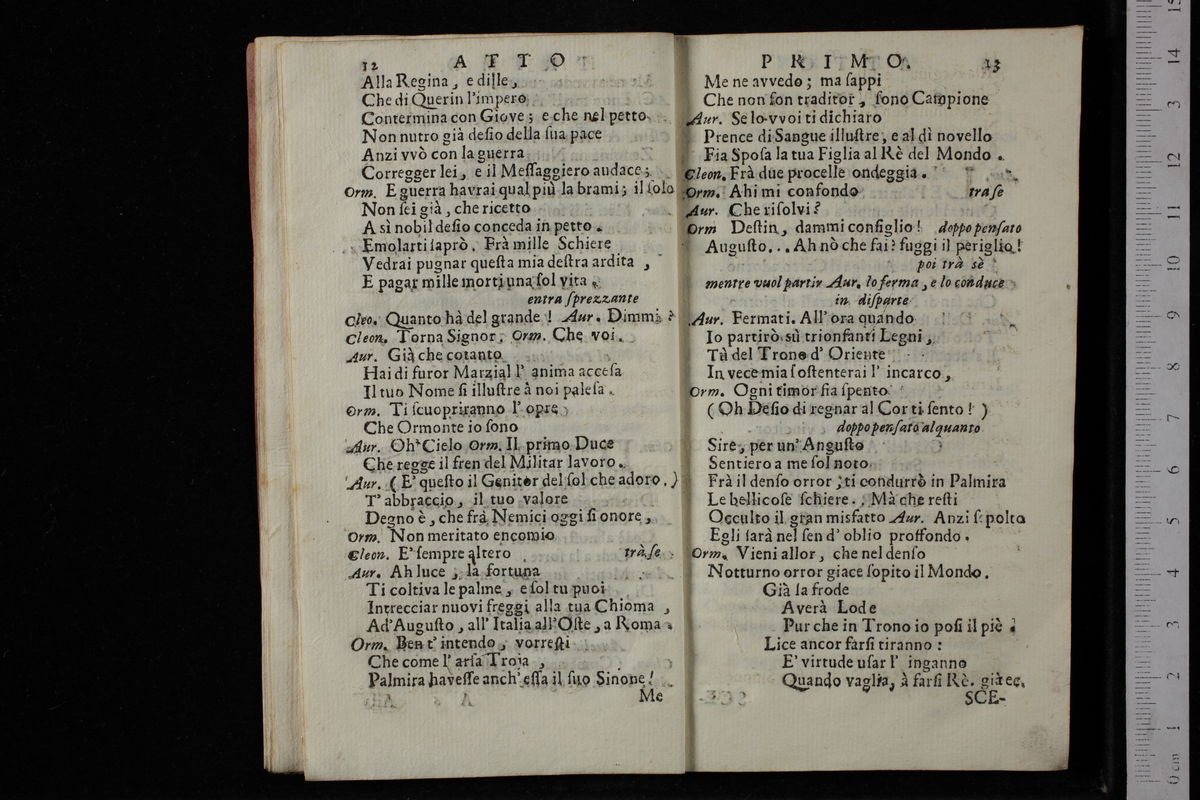 12 ATTO
Alla Regina, e dille,
Che di Querin l'impero
Contermina con Giove; e che nel petto
Non nutro già desio della sua pace
Anzi vvò con la guerra
Corregger lei, e il Messaggiero audace;
Orm. E guerra havrai qual più la brami; il solo
Non sei già, che ricetto
A sì nobil desio conceda in petto.
Emolarti saprò. Frà mille Schiere
Vedrai pugnar questa mia destra ardita,
E pagar mille morti una sol vita.
entra sprezzante
Cleo. Quanto hà del grande! Aur. Dimmi?
Cleon. Torna Signor. Orm. Che voi.
Aur. Già che cotanto
Hai di furor Marzial l' anima accesa
Il tuo Nome si illustre à noi palesa.
Orm. Ti scuopriranno l' opre
Che Ormonte io sono
Aur. Oh Cielo Orm. Il primo Duce
Che regge il fren del Militar lavoro.
Aur. (E' questo il Genitor del sol che adoro.)
T' abbraccio, il tuo valore
Degno è, che frà Nemici oggi si onore,
Orm. Non meritato encomio
Cleon. E' sempre altero trà se
Aur. Ah luce, la fortuna
Ti coltiva le palme, e sol tu puoi
Intrecciar nuovi freggi alla tua Chioma,
Ad'Augusto, all' Italia all'Oste, a Roma.
Orm. Ben t' intendo, vorresti
Che come l' arsa Troja,
Palmira havesse anch' essa il suo Sinone!
Me
PRIMO. 13
Me ne avvedo; ma sappi
Che non son traditor, sono Campione
Aur. Se lo vvoi ti dichiaro
Prence di Sangue illustre, e al dì novello
Fia Sposa la tua Figlia al Rè del Mondo.
Cleon. Frà due procelle ondeggia.
Orm. Ahi mi confondo tra se
Aur. Che risolvi?
Orm Destin, dammi consiglio! doppo pensato
Augusto... Ah nò che fai? fuggi il periglio!
poi trà sè
mentre vuol partir Aur. lo ferma, e lo conduce
in disparte
Aur. Fermati. All' ora quando
Io partirò sù trionfanti Legni,
Tù del Trono d' Oriente
In vece mia sostenterai l' incarco,
Orm. Ogni timor sia spento
(Oh Desio di regnar al Cor ti sento!)
doppo pensato alquanto
Sire, per un' Angusto
Sentiero a me sol noto
Frà il denso orror; ti condurrò in Palmira
Le bellicose schiere. Mà che resti
Occulto il gran misfatto Aur. Anzi s polto
Egli sarà nel sen d' oblio proffondo.
Orm. Vieni allor, che nel denso
Notturno orror giace sopito il Mondo.
Già la frode
Averà Lode
Pur che in Trono io posi il piè.
Lice ancor farsi tiranno:
E' virtude usar l' inganno
Quando vaglia, à farsi Rè. già ec.
SCE-